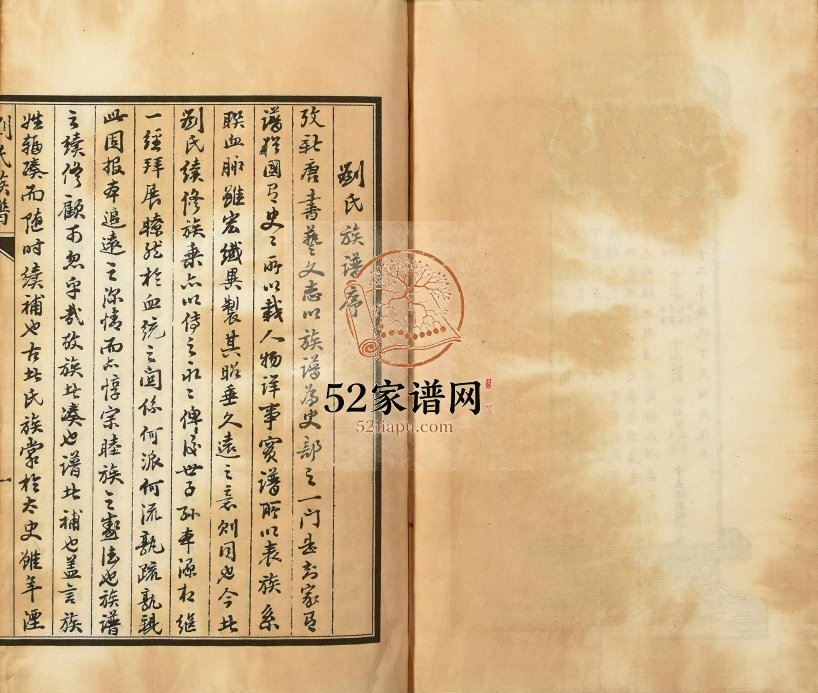 劉氏族譜序
攷新唐書藝文志以族譜為史部之一門是知家有
譜猶國有史史所以載人物詳事實譜所以表族系
聯血脉雖宏纖異製其昭垂久遠之意則同也今此
劉氏續修族乘亦以傳之永永俾後世子孫本源相繼
一經拜展瞭然於血統之關係何派何流孰疏孰親
此固報本追遠之深情而亦惇宗睦族之良法也族譜
之續修顧可忽乎哉故族者湊也譜者補也蓋言族
姓輻湊而随時續補也古者氏族掌於太史雖年湮
劉氏族譜
一
52家谱网
52jiapu.com